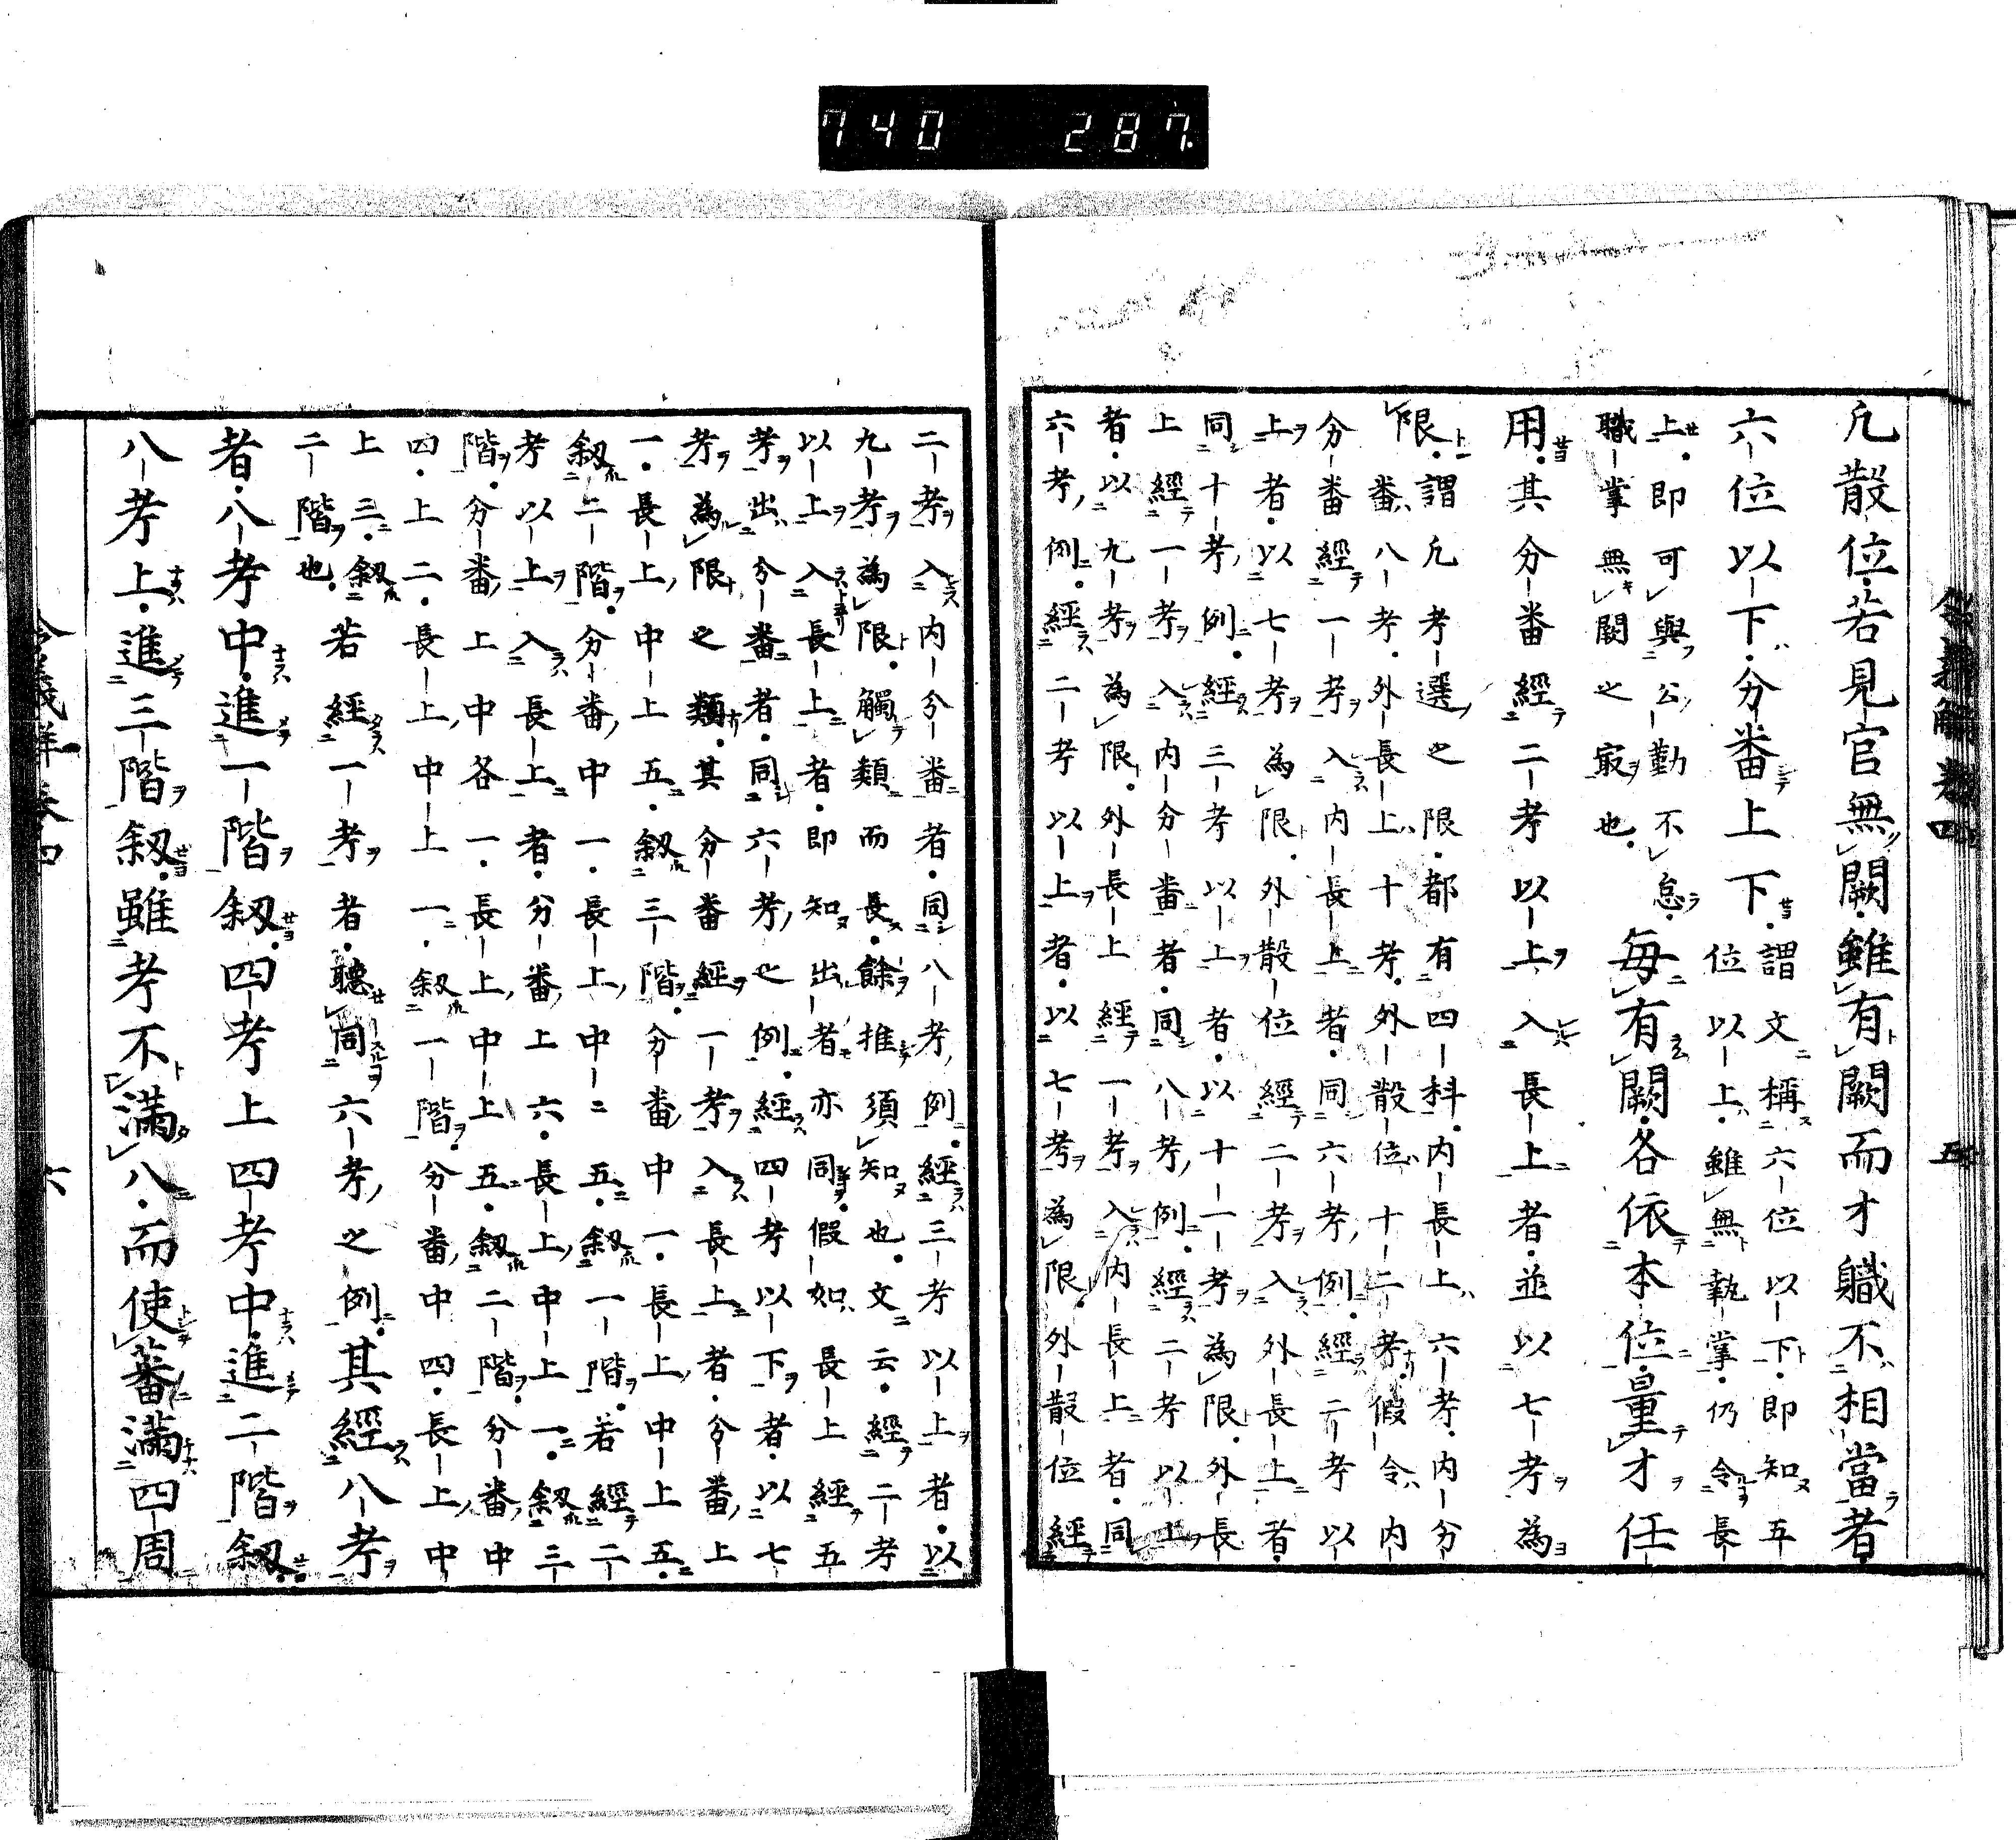 令義解 卷四 五
凢散位若見官無闕雖有闕而才職不相當者
六位以下分番上下
謂文稱六位以下即知五
位以上雖無執掌仍令長
上即可與公勤不怠
職掌無闕之最也
每有闕各依本位量才任
用其分番經二考以上入長上者並以七考為
限
謂凢考選之限都有四科内長上六考内分
番八考外長上十考外散位十二考假令内
分番經一考入内長上者同六考例經二考以
上者以七考為限外散位經二考入外長上者
同十考例經三考以上者以十一考為限外長
上經一考入内分番者同八考例經二考以上
者以九考為限外長上經一考入内長上者同
六考例經二考以上者以七考為限外散位經
二考入内分番者同八考例經三考以上者以
九考為限觸類而長餘推須知也文云經二考
以上入長上者即知出者亦同假如長上經五
考出分番者同六考之例經四考以下者以七
考為限之類其分番經一考入長上者分番上
一長上中上五叙三階分番中一長上中上五
叙二階分番中一長上中二五叙一階若經二
考以上入長上者分番上六長上中上一叙三
階分番上中各一長上中上五叙二階分番中
四上二長上中上一叙一階分番中四長上中
上三叙
二階也
若經一考者聽同六考之例其經八考
者八考中進一階叙四考上四考中進二階叙
八考上進三階叙雖考不滿八而使蕃滿四周
令義解 卷四 六
740 287